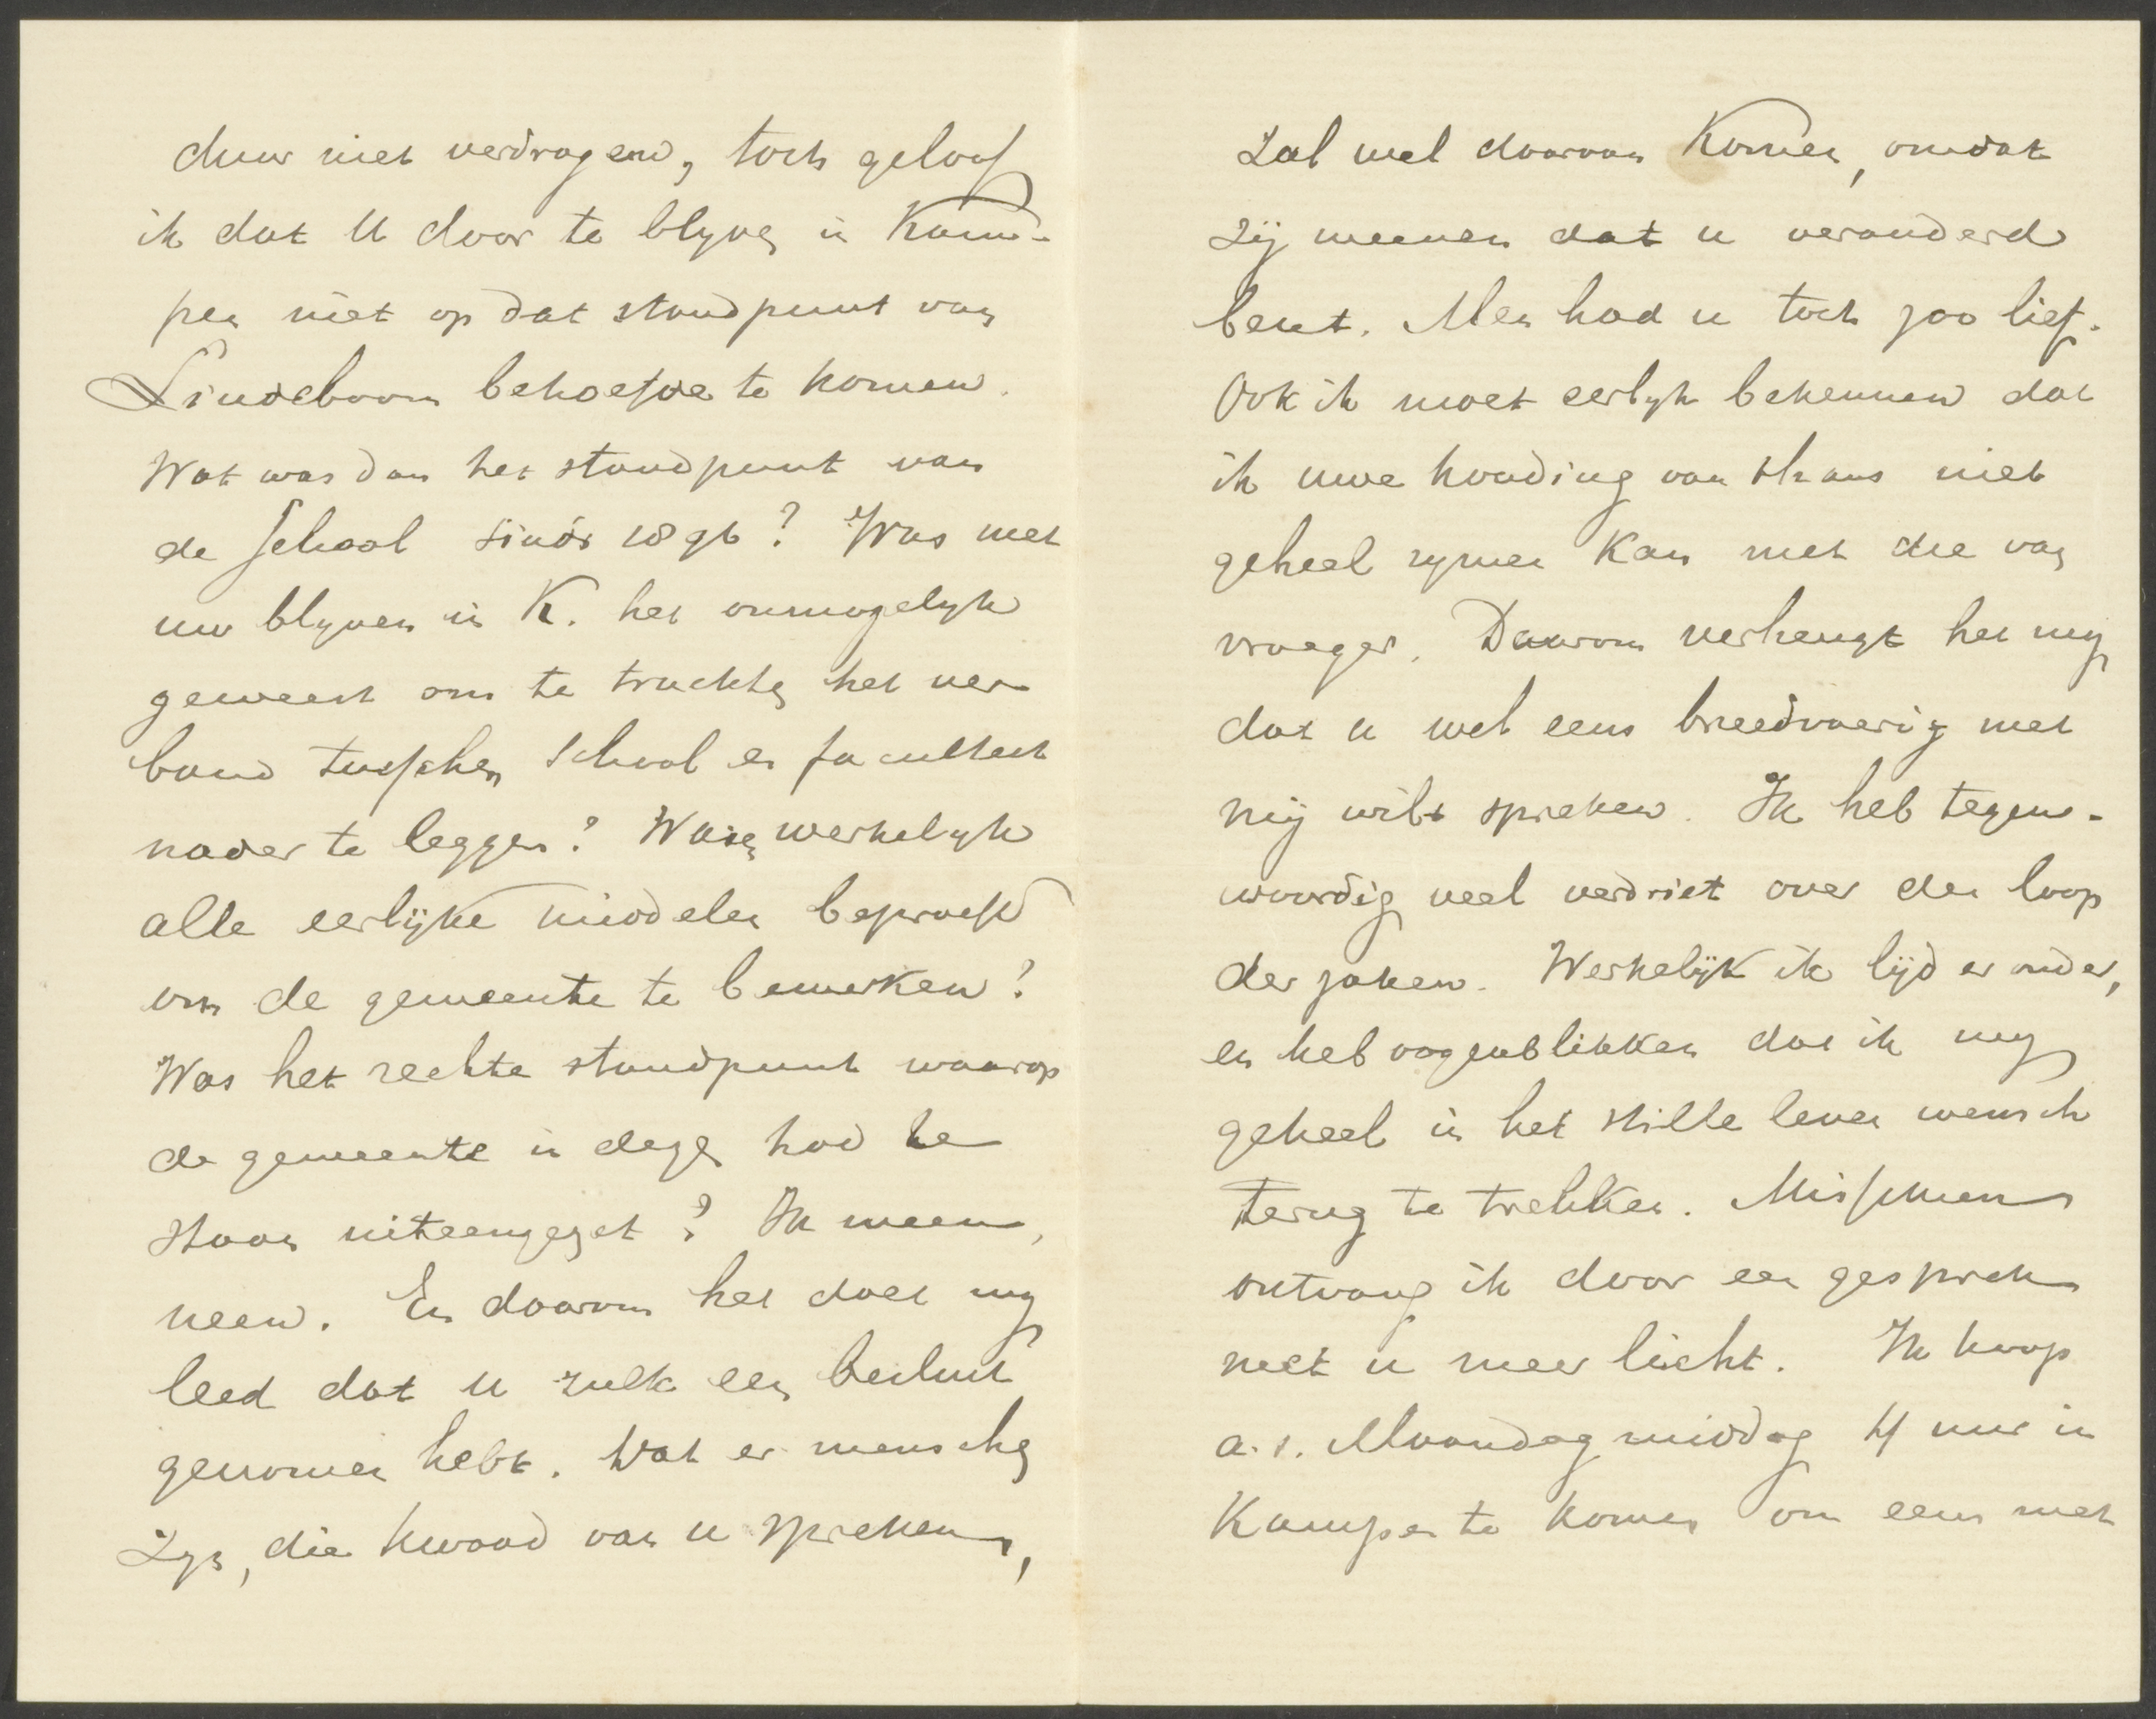 duur niet verdragend, toch geloof
ik dat U door te blyven in Kam-
pen niet op dat standpunt van
Lindeboom behoefde te komen.
Wat was dan het standpunt van
de School sinds 1896? Was met
uw blyven in K. het onmogelyk
geweest om te trachten het ver
band tusschen School en faculteit
nader te leggen? Waren werkelyk
alle eerlijke middelen beproefd
om de gemeente te bewerken?
Was het rechte standpunt waarop
de gemeente in dezen had te
staan uiteengezet? Ik meen,
neen. En daarom het doet my
leed dat u zulk een besluit
genomen hebt. Wat er menschen
zyn, die kwaad van u spreken,
zal wel daarvan komen, omdat
zij meenen dat u veranderd
bent. Men had u toch zoo lief.
Ook ik moet eerlyk bekennen dat
ik uwe houding van thans niet
geheel rymen kan met die van
vroeger. Daarom verheugt het my
dat u wel eens breedvoerig met
mij wilt spreken. Ik heb tegen-
woordig veel verdriet over den loop
der zaken. Werkelijk ik lijd er onder,
en heb oogenblikken dat ik my
geheel in het stille leven wensch
terug te trekken. Misschien
ontvang ik door een gesprek
met u meer licht. Ik hoop
a.s. Maandag middag 4 uur in
Kampen te komen om eens met